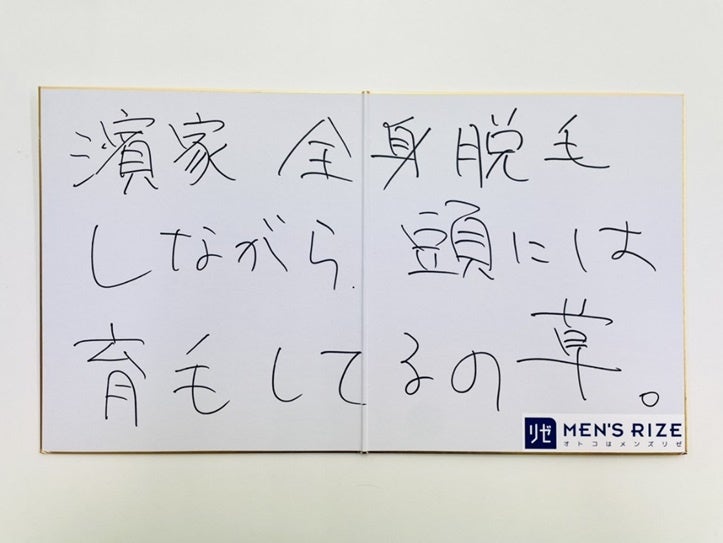 濱家 全身脱毛
しながら、頭には
育毛してるの草。
リゼ MEN'S RIZE
オトコはメンズリゼ